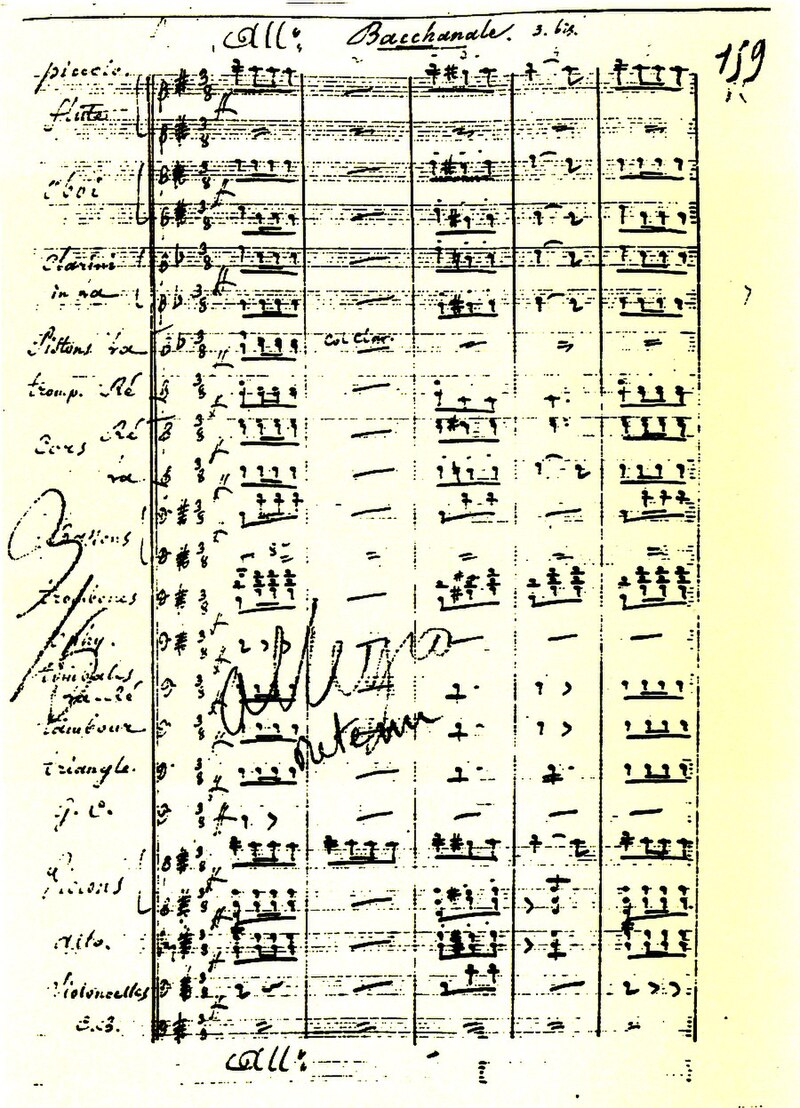 All:° Bacchanale. 3. bis.
159
piccolo.
flute
Oboi
Clarini
in La
Pistons La
Col Clar.
tromp. Ré
Cors Ré
La
Bassons
trombones
Ophy.
timbales
La-Ré
tambour
triangle.
G. C.
allegro
retenu
Violons
alto.
Violoncelles
C.B.
All:°